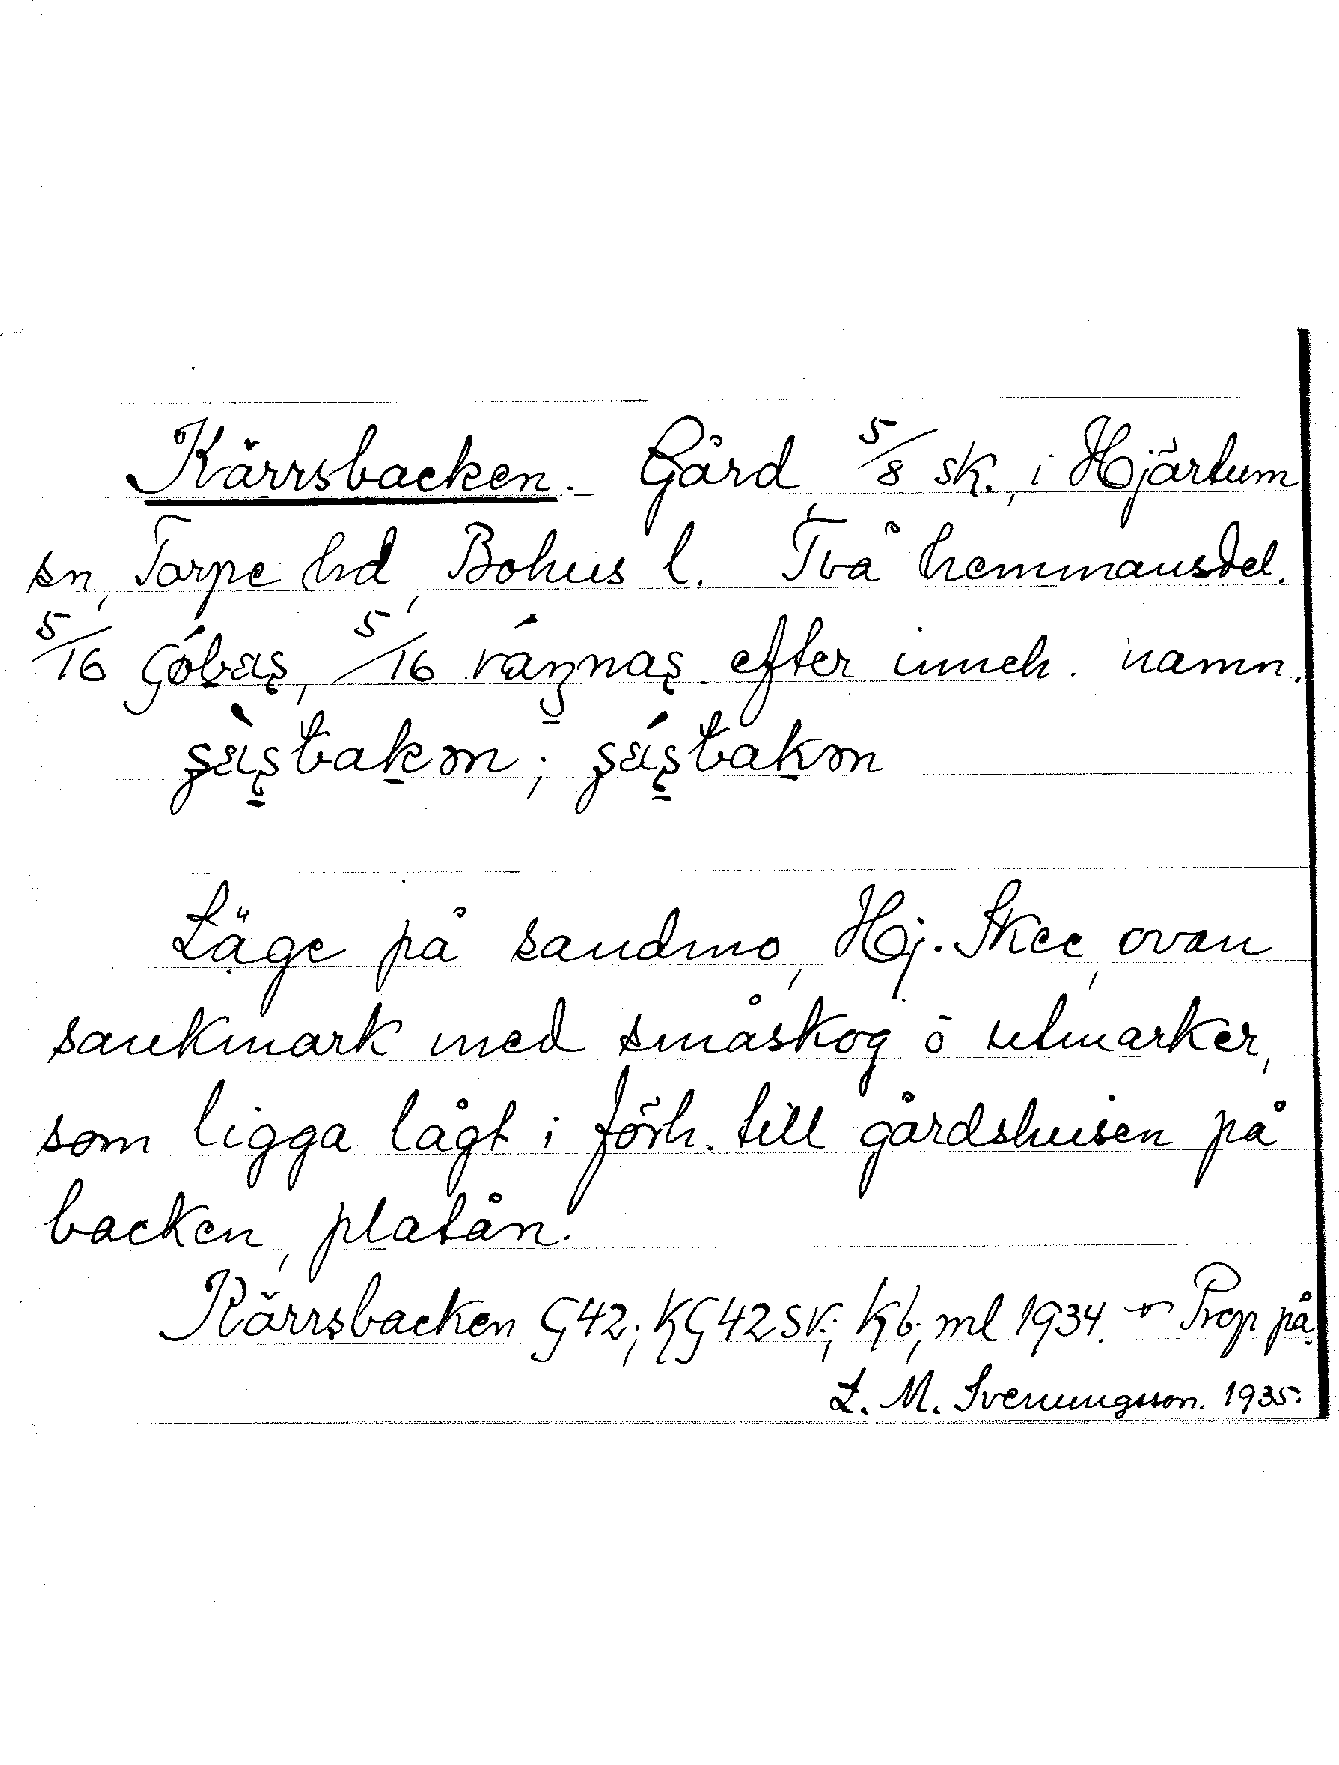 Kärrsbacken. Gård, 5/8 sk., i Hjärtum
sn, Torpe hd, Bohus l. Två hemmansdel.
5/16 5/16 efter inneh. namn.
Läge på sandmo, Hj. Skee, ovan
sankmark med småskog o utmarker,
som ligga lågt i förh. till gårdshusen på
backen, platån.
Kärrsbacken G42; KG42SV; Kb, ml 1934. Prop på
L. M. Svenungsson. 1935.